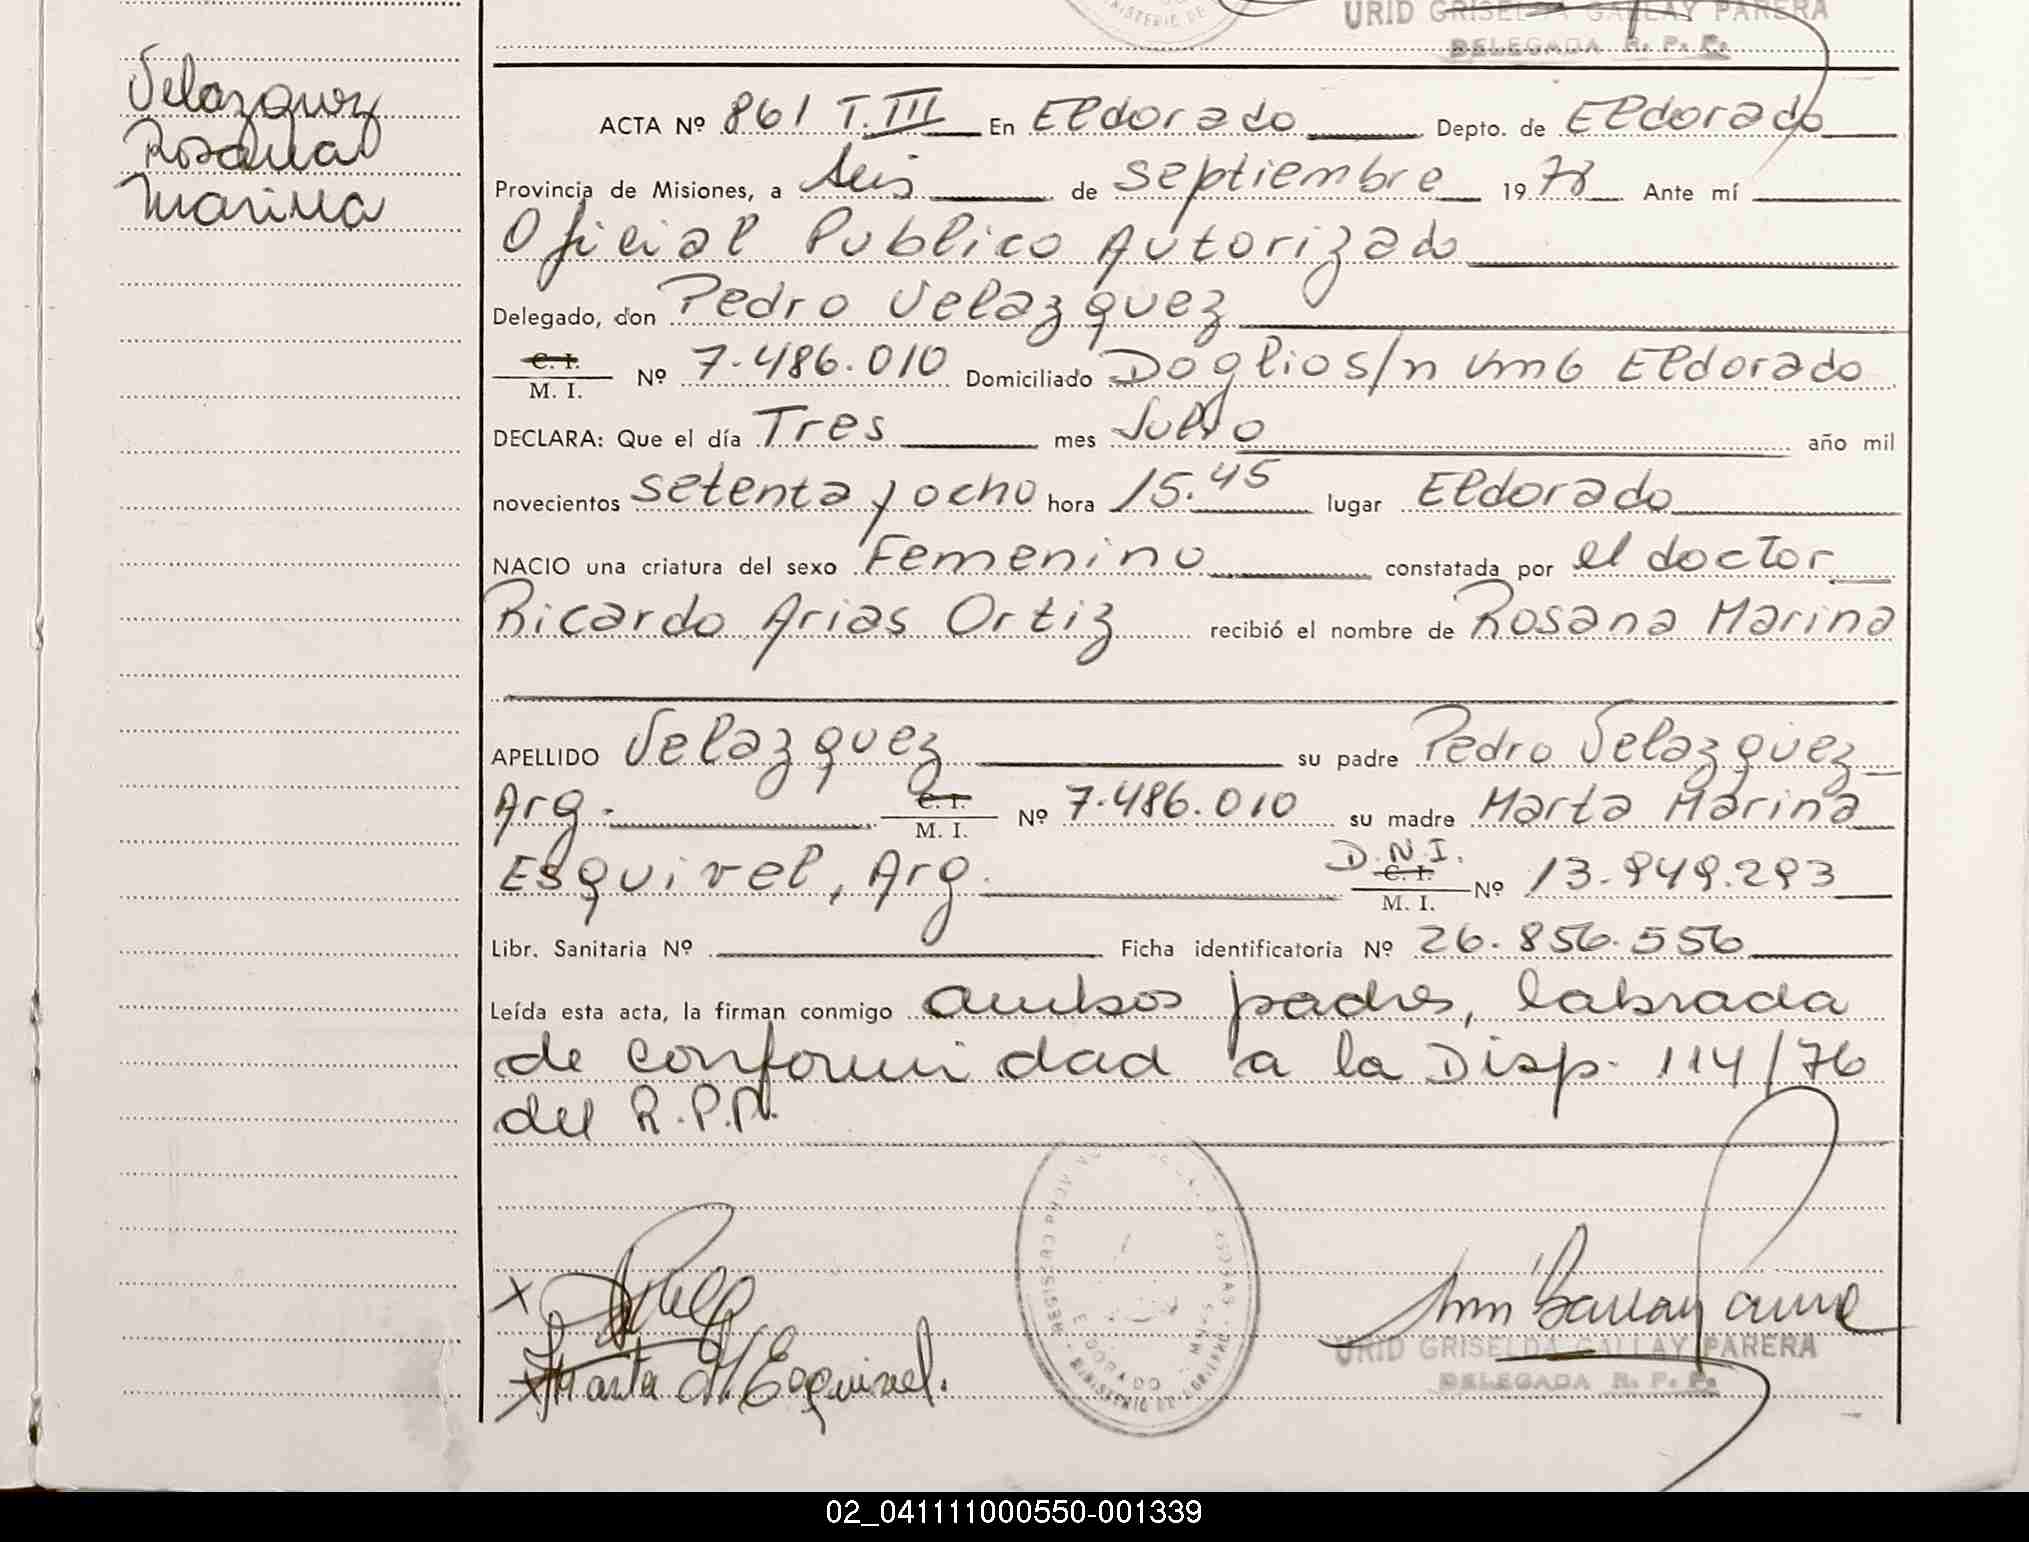 URID GRISELDA GALLAY PARERA
DELEGADA R. P. P.
Velazquez
Rosana
Marina
ACTA Nº 861 T. III En Eldorado Depto. de Eldorado
Provincia de Misiones, a seis de septiembre 1978 Ante mí
Oficial Publico Autorizado
Delegado, don Pedro Velazquez
C. I.
M. I. Nº 7.486.010 Domiciliado Doglio s/n Km 6 Eldorado
DECLARA: Que el día Tres mes Julio año mil
novecientos setenta y ocho hora 15.45 lugar Eldorado
NACIO una criatura del sexo Femenino constatada por el doctor
Ricardo Arias Ortiz recibió el nombre de Rosana Marina
APELLIDO Velazquez su padre Pedro Velazquez
Arg. C. I. M. I. Nº 7.486.010 su madre Marta Marina
Esquivel, Arg. D.N.I. C. I. M. I. Nº 13.949.293
Libr. Sanitaria Nº Ficha identificatoria Nº 26.856.556
Leída esta acta, la firman conmigo ambos padres, labrada
de conformidad a la Disp. 114/76
del R.P.P.
Marta M Esquivel.
URID GRISELDA GALLAY PARERA
DELEGADA R. P. P.
02_041111000550-001339